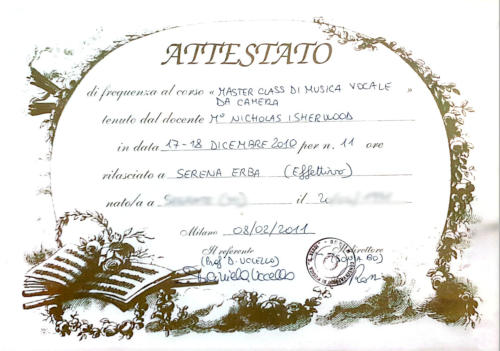 ATTESTATO
di frequenza al corso « MASTER CLASS DI MUSICA VOCALE »
DA CAMERA
tenuto dal docente M° NICHOLAS ISHERWOOD
in data 17-18 DICEMBRE 2010 per n. 11 ore
rilasciato a SERENA ERBA (Effettivo)
nato/a a il 2
Milano 08/02/2011
Il referente Il direttore
(Prof. D. UCCELLO) (SONIA BO)
Daniela Uccello